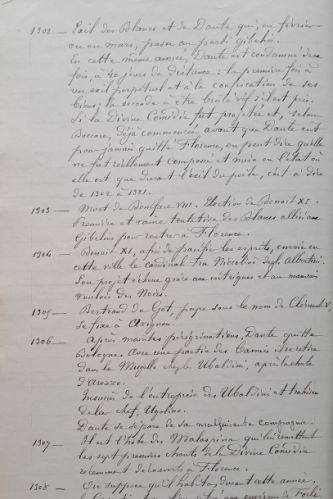 1302 — Exil des Blancs et de Dante qui, en février
ou en mars, passa au parti gibelin.
En cette même année, Dante est condamné deux
fois, à 40 jours de distance : la première fois à
un exil perpétuel et à la confiscation de ses
biens ; la seconde à être brûlé vif s'il est pris.
Si la Divine Comédie fut projetée et, selon
Boccace, déjà commencée avant que Dante eut
pour jamais quitté Florence, on peut dire qu'elle
ne fut réellement composée et mise en l'état où
elle est que durant l'exil du poète, c'est à dire
de 1302 à 1321.
1303 — Mort de Boniface VIII. Élection de Benoit XI.
Première et vaine tentative des Blancs alliés aux
Gibelins pour rentrer à Florence.
1304 — Benoit XI, afin de pacifier les esprits, envoie en
cette ville le cardinal fra Niccolini degli Albertini.
Son projet échoue grâce aux intrigues et au mauvais
vouloir des Noirs.
1305 — Bertrand de Got, pape sous le nom de Clément V,
se fixe à Avignon.
1306 — Après maintes pérégrinations, Dante quitte
Bologne. Avec une partie des bannis, il se retire
dans le Mugello chez les Ubaldini, après la chute
d'Arezzo.
Insuccès de l'entreprise des Ubaldini et trahison
de la chef, Ugolino.
Dante se sépare de sa malfaisante compagnie.
1307 — Il est l'hôte des Malaspina qui lui remettent
les sept premiers chants de la Divine Comédie
récemment découverts à Florence.
1308 — On suppose qu'il habita, durant cette année,